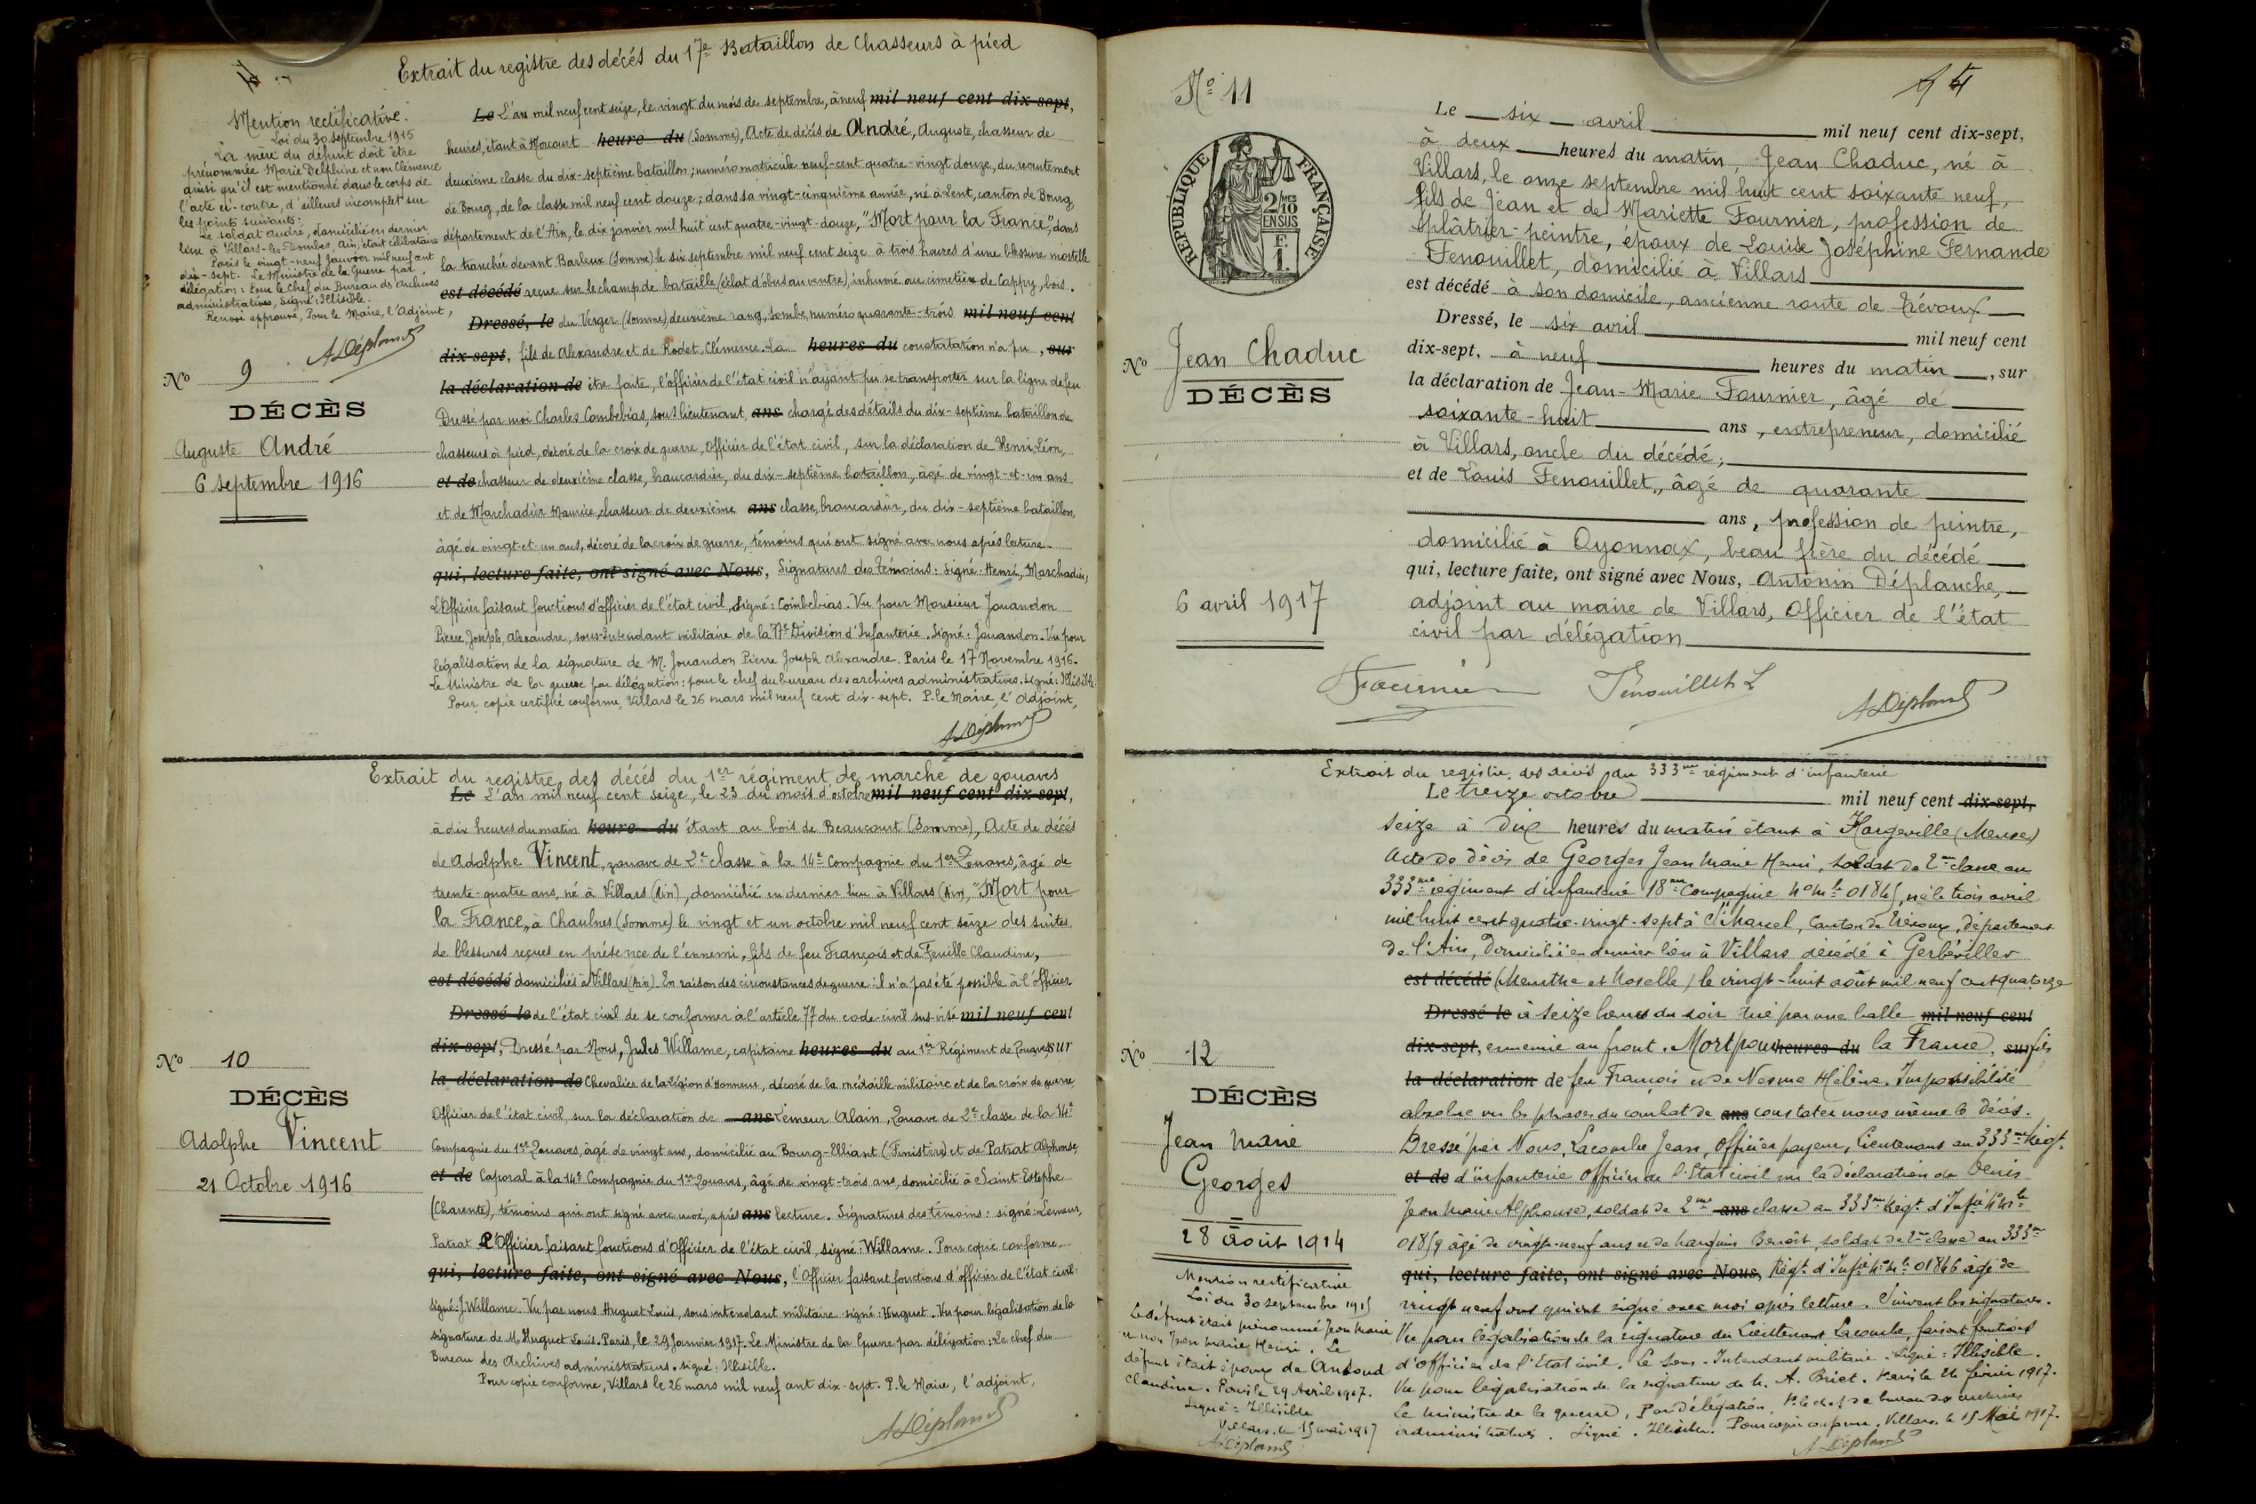 Extrait du registre des décés du 17e Bataillon de Chasseurs à pied
Mention rectificative.
Loi du 30 septembre 1915
La mère du défunt doit être
prénommée Marie Delphine et non Clémence
ainsi qu'il est mentionné dans le corps de
l'acte ci-contre, d'ailleurs incomplet sur
les points suivants:
Le soldat André, domicilié en dernier
lieu à Villars-les-Dombes, Ain, était célibataire
Paris le vingt-neuf janvier mil neuf cent
dix-sept. Le Ministre de la Guerre par
délégation: Pour le Chef du Bureau des Archives
administratives, Signé: Illisible.
Renvoi approuvé, Pour le Maire, l'Adjoint,
A. Déplanch
No 9
DÉCÈS
Auguste André
6 septembre 1916
Le L'an mil neuf cent seize, le vingt du mois de septembre, à neuf mil neuf cent dix-sept,
heures, étant à Morcourt heure du (Somme), Acte de décés de André, Auguste, chasseur de
deuxième classe du dix-septième bataillon; numéro matricule neuf-cent quatre-vingt douze, du recrutement
de Bourg, de la classe mil neuf cent douze; dans sa vingt-cinquième année, né à Lent, canton de Bourg,
département de l'Ain, le dix janvier mil huit cent quatre-vingt-douze, "Mort pour la France", dans
la tranchée devant Barleux (Somme) le six septembre mil neuf cent seize à trois heures d'une blessure mortelle
est décédé reçue sur le champ de bataille (éclat d'obus au ventre), inhumé au cimetière de Cappy, bois.
Dressé, le du Verger (Somme) deuxième rang, tombe numéro quarante-trois mil neuf cent
dix-sept, fils de Alexandre et de Rodet, Clémence. La heures du constatation n'a pu, sur
la déclaration de être faite, l'officier de l'état civil n'ayant pu se transporter sur la ligne de feu
Dressé par moi Charles Combebias, sous lieutenant, ans chargé des détails du dix-septième bataillon de
chasseurs à pied, décoré de la croix de guerre, Officier de l'état civil, sur la déclaration de Henri Léon,
et de chasseur de deuxième classe, brancardier, du dix-septième bataillon, âgé de vingt-et-un ans
et de Marchadier Maurice, chasseur de deuxième ans classe, brancardier, du dix-septième bataillon,
âgé de vingt-et-un ans, décoré de la croix de guerre, témoins qui ont signé avec nous après lecture.
qui, lecture faite, ont signé avec Nous, Signatures des témoins: Signé: Henri, Marchadier,
L'Officier faisant fonctions d'officier de l'état civil, Signé: Combebias. Vu pour Monsieur Jouandon
Pierre Joseph, Alexandre, sous-Intendant militaire de la Division d'Infanterie. Signé: Jouandon. Vu pour
légalisation de la signature de M. Jouandon Pierre Joseph Alexandre. Paris le 17 Novembre 1916.
Le Ministre de la guerre par délégation: pour le chef du bureau des archives administratives. Signé: Illisible.
Pour copie certifiée conforme, Villars le 26 mars mil neuf cent dix-sept. P. le Maire, l'Adjoint,
A. Déplanch
Extrait du registre des décés du 1er régiment de marche de zouaves
Le L'an mil neuf cent seize, le 23 du mois d'octobre mil neuf cent dix-sept,
à dix heures du matin heure du étant au bois de Beaucourt (Somme), Acte de décés
de Adolphe Vincent, zouave de 2e classe à la 14e Compagnie du 1er Zouaves, âgé de
trente-quatre ans, né à Villars (Ain), domicilié en dernier lieu à Villars (Ain), "Mort pour
la France", à Chaulnes (Somme) le vingt et un octobre mil neuf cent seize des suites
de blessures reçues en présence de l'ennemi, fils de feu François et de Feuille Claudine,
est décédé domiciliés à Villars (Ain). En raison des circonstances de guerre: il n'a pas été possible à l'Officier
Dressé le de l'état civil de se conformer à l'article 77 du code civil sus-visé mil neuf cent
dix-sept, Dressé par Nous, Jules Willame, capitaine heures du au 1er Régiment de Zouaves sur
la déclaration de Chevalier de la légion d'Honneur, décoré de la médaille militaire et de la croix de guerre,
Officier de l'état civil, sur la déclaration de ans Lemeur Alain, Zouave de 2e classe de la 14e
Compagnie du 1er Zouaves, âgé de vingt ans, domicilié au Bourg-Elliant (Finistère) et de Patrat Alphonse,
et de Caporal à la 14e Compagnie du 1er Zouaves, âgé de vingt-trois ans, domicilié à Saint-Estèphe
(Charente), témoins qui ont signé avec moi, après ans lecture. Signatures des témoins: signé: Lemeur,
Patrat L'Officier faisant fonctions d'Officier de l'état civil, signé: Willame. Pour copie conforme
qui, lecture faite, ont signé avec Nous, l'Officier faisant fonctions d'officier de l'état civil:
signé: J. Willame. Vu par nous Huguet Louis, sous intendant militaire. signé: Huguet. Vu pour légalisation de la
signature de M. Huguet Louis. Paris, le 29 Janvier 1917. Le Ministre de la Guerre par délégation: Le chef du
Bureau des Archives administrateurs. signé: Illisible.
Pour copie conforme, Villars le 26 mars mil neuf cent dix-sept. P. le Maire, l'adjoint,
A. Déplanch
No 10
DÉCÈS
Adolphe Vincent
21 Octobre 1916
No 11
RÉPUBLIQUE FRANÇAISE
2/10
EN SUS
1 F.
No Jean Chaduc
DÉCÈS
6 avril 1917
Le six avril mil neuf cent dix-sept,
à deux heures du matin, Jean Chaduc, né à
Villars, le onze septembre mil huit cent soixante neuf,
fils de Jean et de Mariette Fournier, profession de
plâtrier-peintre, époux de Louise Joséphine Fernande
Fenouillet, domicilié à Villars
est décédé à son domicile, ancienne route de Trévoux
Dressé, le six avril mil neuf cent
dix-sept, à neuf heures du matin, sur
la déclaration de Jean-Marie Fournier, âgé de
soixante-huit ans, entrepreneur, domicilié
à Villars, oncle du décédé;
et de Louis Fenouillet, âgé de quarante
ans, profession de peintre,
domicilié à Oyonnax, beau frère du décédé
qui, lecture faite, ont signé avec Nous, Antonin Déplanche,
adjoint au maire de Villars, Officier de l'état
civil par délégation
Fournier Fenouillet L A. Déplanch
Extrait du registre des décès du 333me régiment d'infanterie
Le treize octobre mil neuf cent dix-sept,
seize à dix heures du matin étant à Hargeville (Meuse)
Acte de décès de Georges Jean Marie Henri, soldat de 2me classe au
333me régiment d'infanterie 18me Compagnie No Mle 01845, né le trois avril
mil huit cent quatre-vingt-sept à St Marcel, Canton de Trévoux, département
de l'Ain, Domicilié en dernier lieu à Villars décédé à Gerbéviller
est décédé (Meurthe et Moselle) le vingt-huit août mil neuf cent quatorze
Dressé le à seize heures du soir tué par une balle mil neuf cent
dix-sept, ennemie au front. Mort pour heures du la France, sur fils
la déclaration de feu François et de Nesme Hélène. Impossibilité
absolue vu les phases du combat de ans constater nous même le décès.
Dressé par Nous, Lacombe Jean, Officier payeur, Lieutenant au 333me Régt.
et de d'infanterie Officier de l'Etat civil sur la déclaration de Denis
Jean Marie Alphonse, soldat de 2me ans classe au 333me Régt d'Infie No Mle
01859 âgé de vingt-neuf ans et de Benoît, soldat de 2me classe au 333me
qui, lecture faite, ont signé avec Nous, Régt d'Infie No Mle 01866 âgé de
vingt neuf ans qui ont signé avec moi après lecture. Suivent les signatures.
Vu pour légalisation de la signature du Lieutenant Lacombe, faisant fonctions
d'officier de l'Etat civil. Le Sous-Intendant militaire. Signé: Illisible.
Vu pour légalisation de la signature de M. A. Briet. Paris le 24 février 1917.
Le Ministre de la guerre, Par délégation. P. le chef de bureau des archives
administratives. Signé. Illisible. Pour copie conforme. Villars le 15 Mai 1917.
A. Déplanch
No 12
DÉCÈS
Jean Marie
Georges
28 Août 1914
Mention rectificative
Loi du 30 septembre 1915
Le défunt était prénommé Jean Marie
et non Jean Marie Henri. Le
défunt était époux de
Claudine. Paris le 29 Avril 1917.
Signé: Illisible
Villars le 15 mai 1917
A. Déplanch